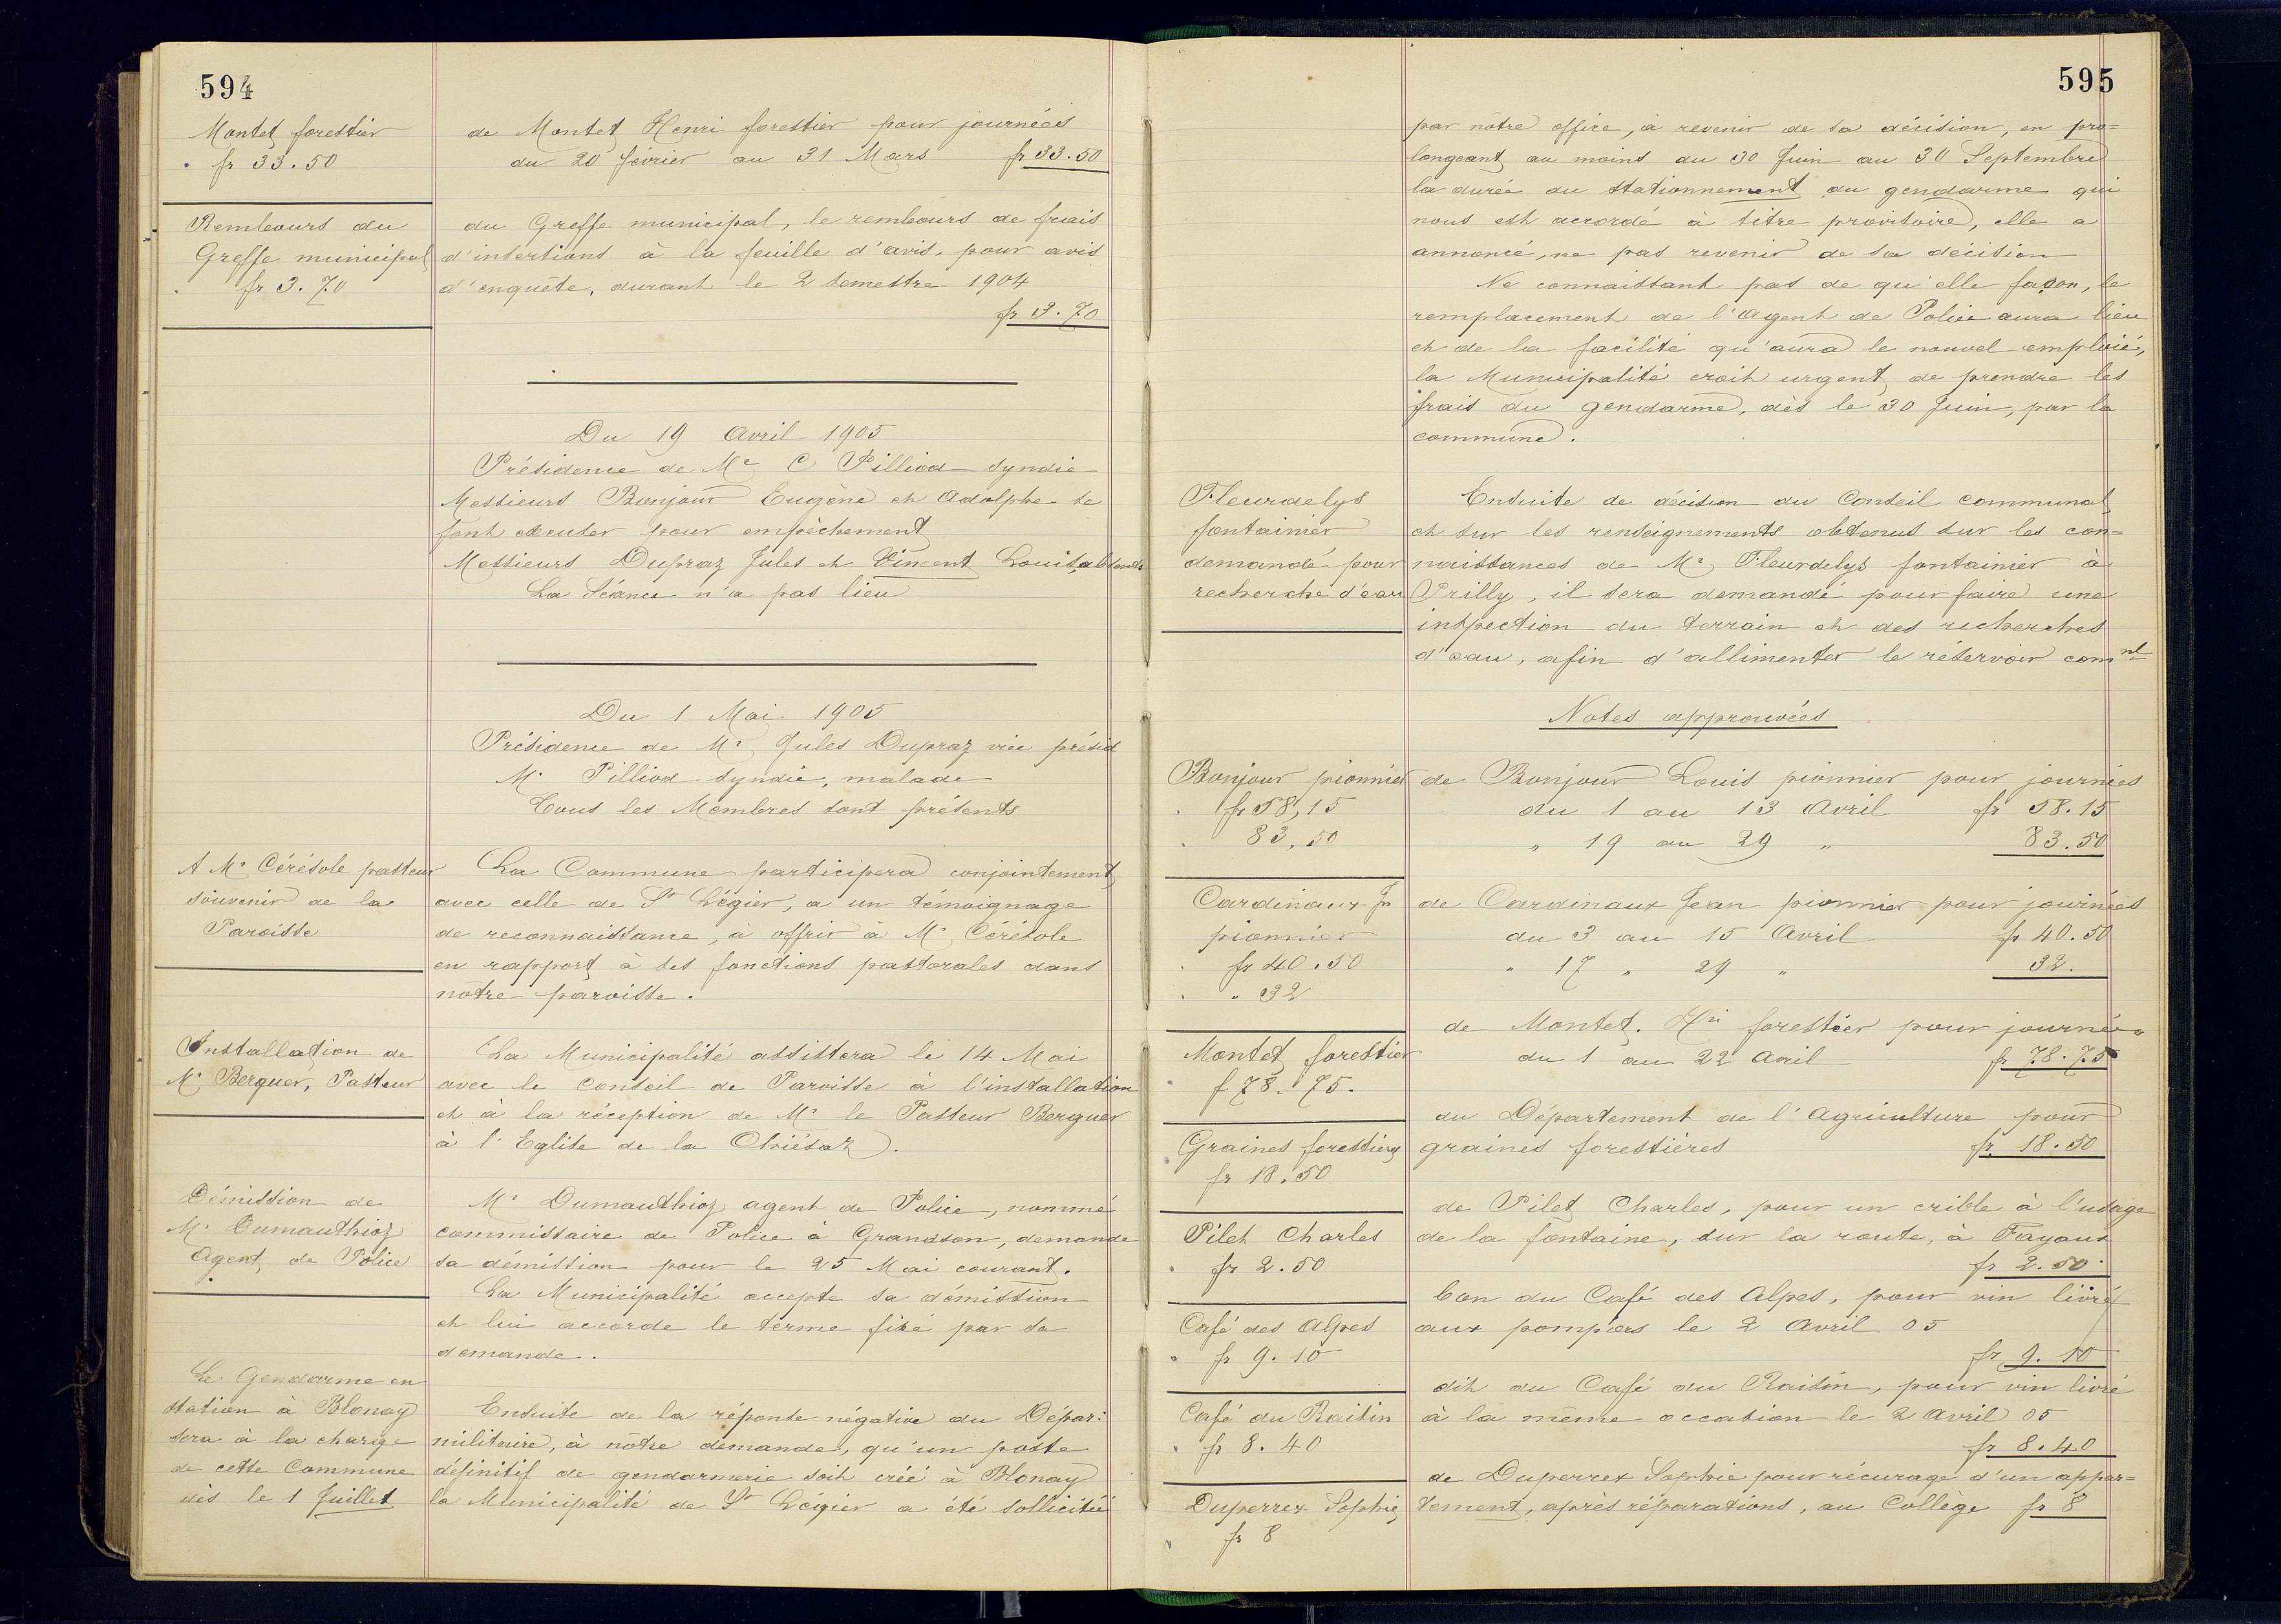 594
Montet forestier
" fr 33.50
de Montet Henri forestier pour journées
du 20 février au 31 Mars fr 33.50
Rembours du
Greffe municipal
" fr 3.70
du Greffe municipal, le rembours de frais
d'insertions à la feuille d'avis, pour avis
d'enquête, durant le 2 semestre 1904
fr 3.70
Du 19 Avril 1905
Présidence de Mr C Pilliod syndic
Messieurs Bonjour Eugène et Adolphe se
font excuser pour empêchement
Messieurs Dupraz Jules et Vincent Louis, absents
La Séance n'a pas lieu
Du 1 Mai 1905
Présidence de Mr Jules Dupraz vice présid
Mr Pilliod syndic, malade
Tous les Membres sont présents
A Mr Cérésole pasteur
souvenir de la
Paroisse
La Commune participera conjointement
avec celle de St Légier, a un témoignage
de reconnaissance, à offrir à Mr Cérésole
en rapport à ses fonctions pastorales dans
nôtre paroisse.
Installation de
Mr Berguer, Pasteur
La Municipalité assistera le 14 Mai
avec le Conseil de Paroisse à l'installation
et à la réception de Mr le Pasteur Berguer
à l'Eglise de la Chiésaz.
Démission de
Mr Dumauthioz
Agent de Police
Mr Dumauthioz agent de Police, nommé
commissaire de Police à Grandson, demande
sa démission pour le 25 Mai courant.
La Municipalité accepte sa démission
et lui accorde le terme fixé par sa
demande.
Le Gendarme en
station à Blonay
sera à la charge
de cette Commune
dès le 1 Juillet
Ensuite de la réponse négative du Dépar:
militaire, à nôtre demande, qu'un poste
définitif de gendarmerie soit créé à Blonay
la Municipalité de St Légier a été sollicitée
595
par nôtre office, à revenir de sa décision, en pro=
longeant au moins du 30 Juin au 30 Septembre
la durée du stationnement du gendarme qui
nous est accordé à titre provisoire, elle a
annoncé, ne pas revenir de sa décision
Ne connaissant pas de qu'elle façon, le
remplacement de l'Agent de Police aura lieu
et de la facilité qu'aura le nouvel emploié,
la Municipalité croit urgent de prendre les
frais du gendarme, dès le 30 Juin, par la
commune.
Fleurdelys
fontainier
demandé pour
recherche d'eau
Ensuite de décision du Conseil communal
et sur les renseignements obtenus sur les con=
naissances de Mr Fleurdelys fontainier à
Prilly, il sera demandé pour faire une
inspection du terrain et des recherches
d'eau, afin d'allimenter le réservoir comnl
Notes approuvées
Bonjour pionnier
" fr 58,15
" 83,50
de Bonjour Louis pionnier pour journées
du 1 au 13 Avril fr 58.15
" 19 au 29 " 83.50
Cardinaux Jn
pionnier
" fr 40.50
" " 32
de Cardinaux Jean pionnier pour journées
du 3 au 15 Avril fr 40.50
" 17 " 29 " 32.
Montet forestier
" f 78.75.
de Montet. Hri forestier pour journées
du 1 au 22 Avril fr 78.75
Graines forestières
" fr 18.50
du Département de l'Agriculture pour
graines forestières fr. 18.50
Pilet Charles
" fr 2.50
de Pilet Charles, pour un crible à l'usage
de la fontaine, sur la route, à Fayaux
fr 2.50
Café des Alpes
" fr 9.10
bon du Café des Alpes, pour vin livré
aux pompiers le 2 Avril 05
fr 9.10
Café du Raisin
" fr 8.40
dit du Café du Raisin, pour vin livré
à la même occasion le 2 Avril 05
fr 8.40
Duperrex Sophie
" fr 8
de Duperrex Sophie pour récurage d'un appar=
tement, après réparations, au Collège fr 8